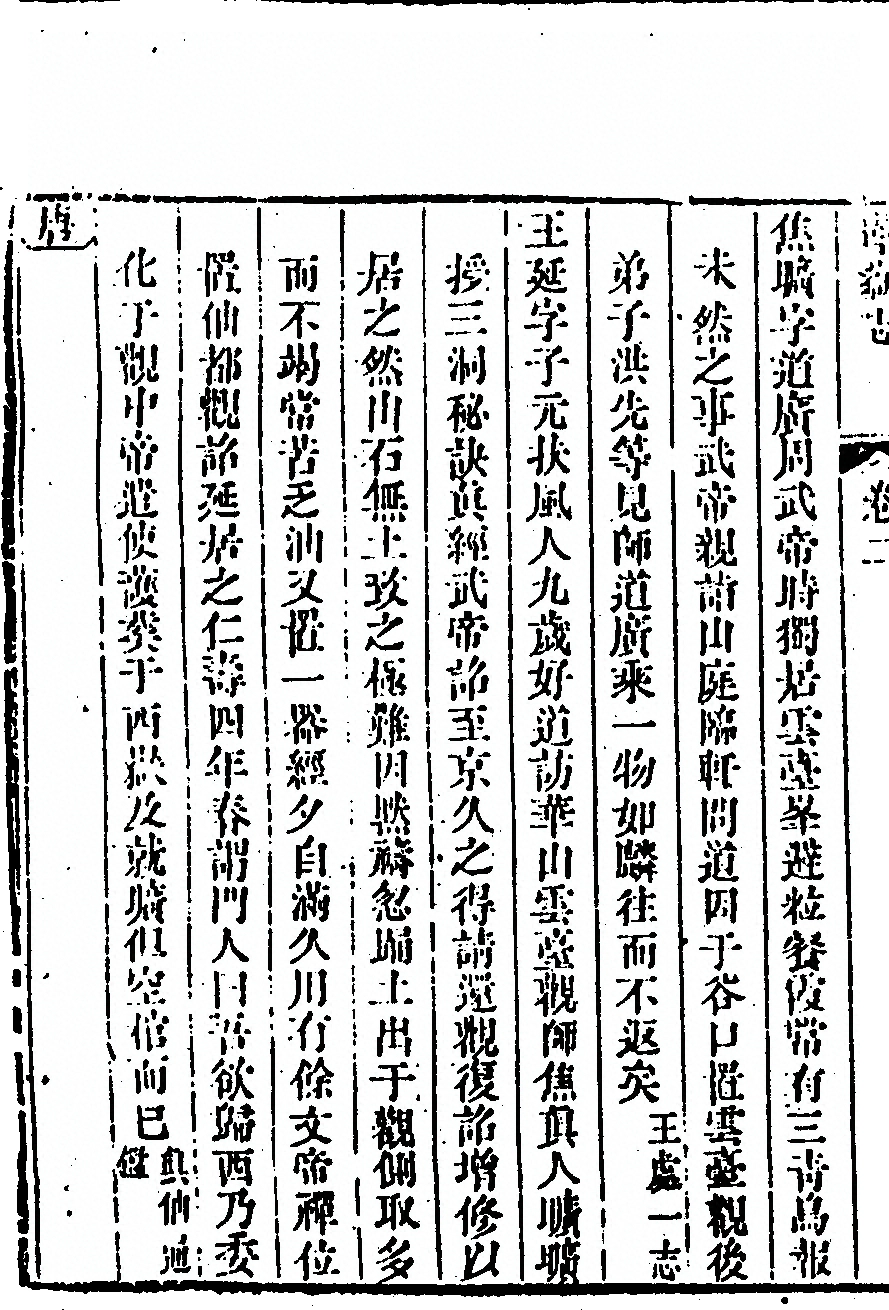 華嶽志 卷二
焦曠字道廣周武帝時獨居雲臺峯避粒餐霞常有三青鳥報
未然之事武帝親詣山庭臨軒問道因于谷口置雲臺觀後
弟子洪先等見師道廣乘一物如驎往而不返矣王處一志
王延字子元扶風人九歲好道訪華山雲臺觀師焦真人曠曠
授三洞秘訣真經武帝詔至京久之得請還觀復詔增修以
居之然山石無土致之極難因默禱忽踊土出于觀側取多
而不竭常苦乏油又置一器經夕自滿久用有餘文帝禪位
置仙都觀詔延居之仁壽四年春謂門人曰吾欲歸西乃委
化于觀中帝遣使護葬于西嶽及就壙但空棺而已真仙通
鑑
唐